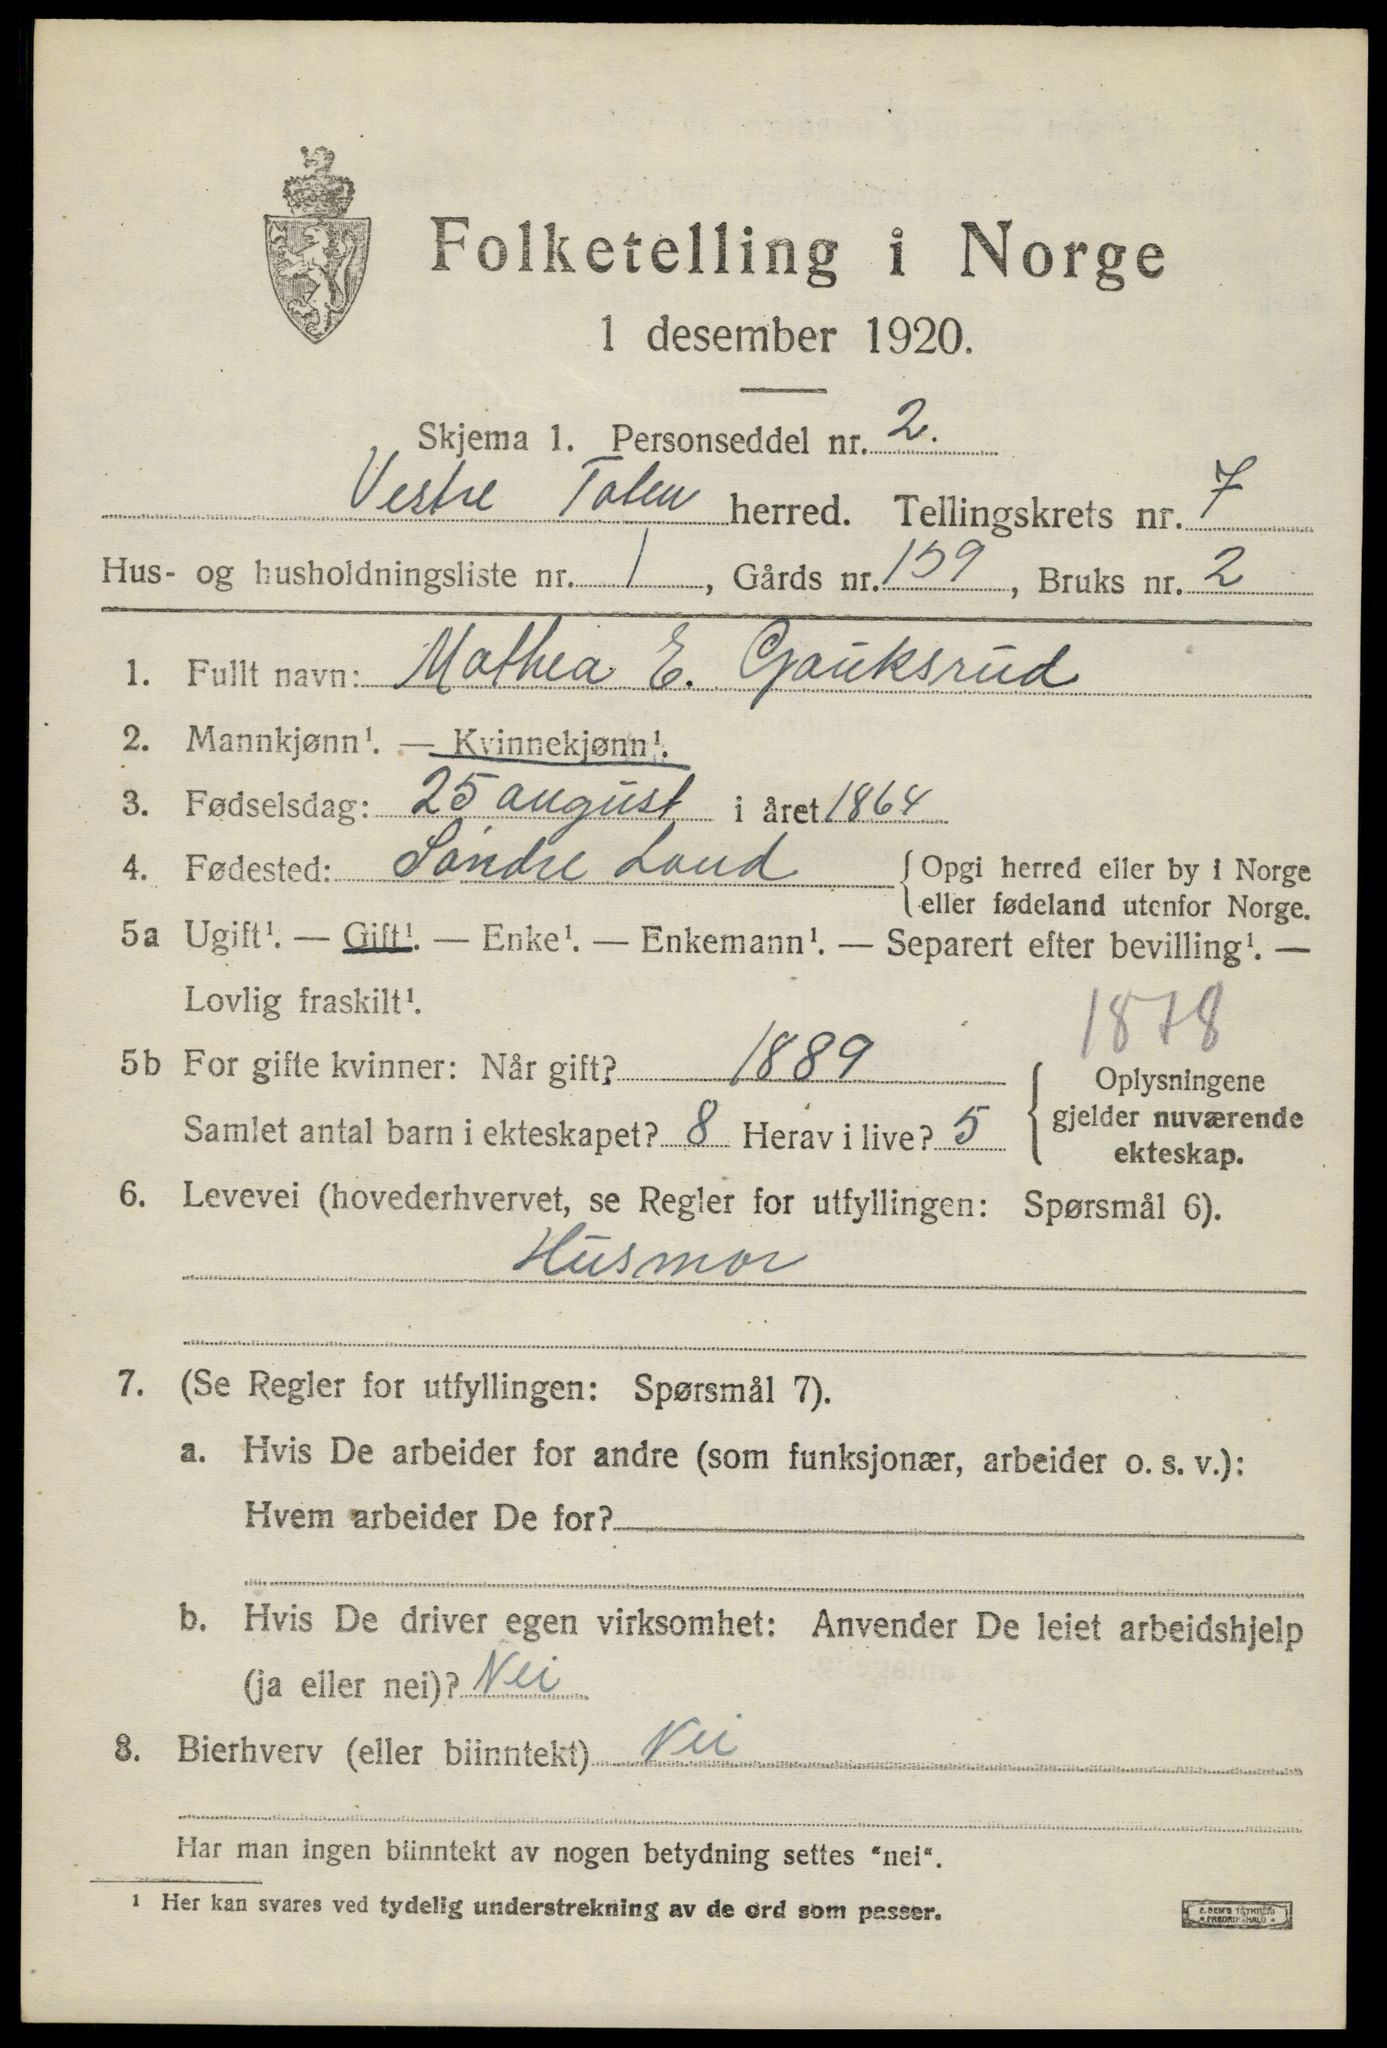 Folketelling i Norge
1 desember 1920.
Skjema 1. Personseddel nr. 2.
Vestre Toten herred. Tellingskrets nr. 7
Hus- og husholdningsliste nr. 1, Gårds nr. 159, Bruks nr. 2
1. Fullt navn: Mathea E. Gauksrud
2. Mannkjønn¹. — Kvinnekjønn¹.
3. Fødselsdag: 25 august i året 1864
4. Fødested: Söndre Land {Opgi herred eller by i Norge
eller fødeland utenfor Norge.
5a Ugift¹. — Gift¹. — Enke¹. — Enkemann¹. — Separert efter bevilling¹. —
Lovlig fraskilt¹.
1878
5b For gifte kvinner: Når gift? 1889
Samlet antal barn i ekteskapet? 8 Herav i live? 5
{ Oplysningene
gjelder nuværende
ekteskap.
6. Levevei (hovederhvervet, se Regler for utfyllingen: Spørsmål 6).
Husmor
7. (Se Regler for utfyllingen: Spørsmål 7).
a. Hvis De arbeider for andre (som funksjonær, arbeider o. s. v.):
Hvem arbeider De for?
b. Hvis De driver egen virksomhet: Anvender De leiet arbeidshjelp
(ja eller nei)? Nei
8. Bierhverv (eller biinntekt) Nei
Har man ingen biinntekt av nogen betydning settes "nei".
¹ Her kan svares ved tydelig understrekning av de ord som passer.